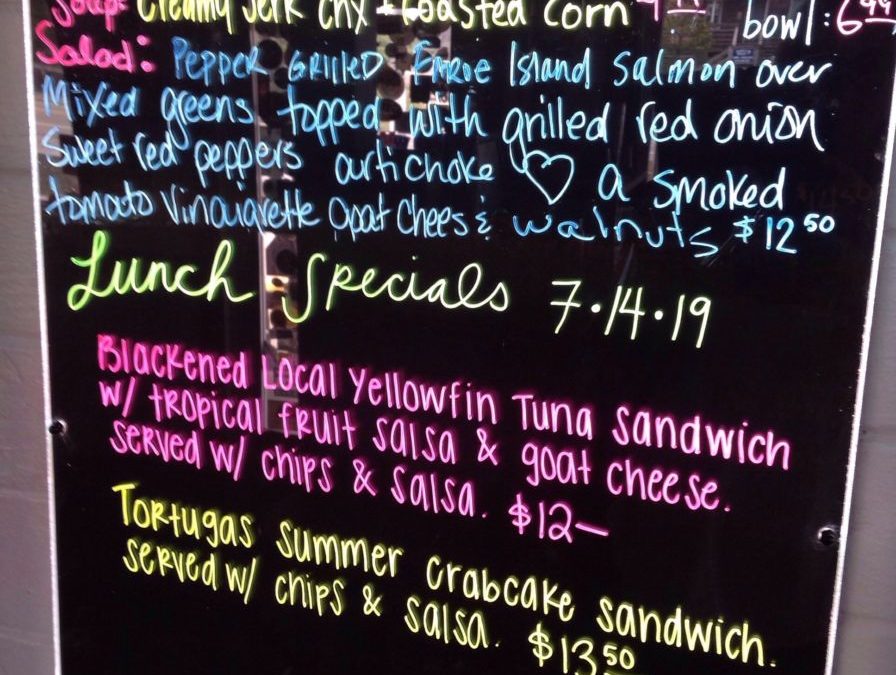 Soup: Creamy Jerk Chx & toasted corn bowl: 6.99
Salad: Pepper Grilled Faroe Island Salmon over
Mixed greens topped with grilled red onion
Sweet red peppers artichoke ♡ a smoked
tomato vinaigrette goat chees & walnuts $12 50
Lunch Specials 7.14.19
Blackened Local Yellowfin Tuna Sandwich
w/ tropical fruit salsa & goat cheese.
served w/ chips & salsa. $12—
Tortugas summer crabcake sandwich.
served w/ chips & salsa. $13 50